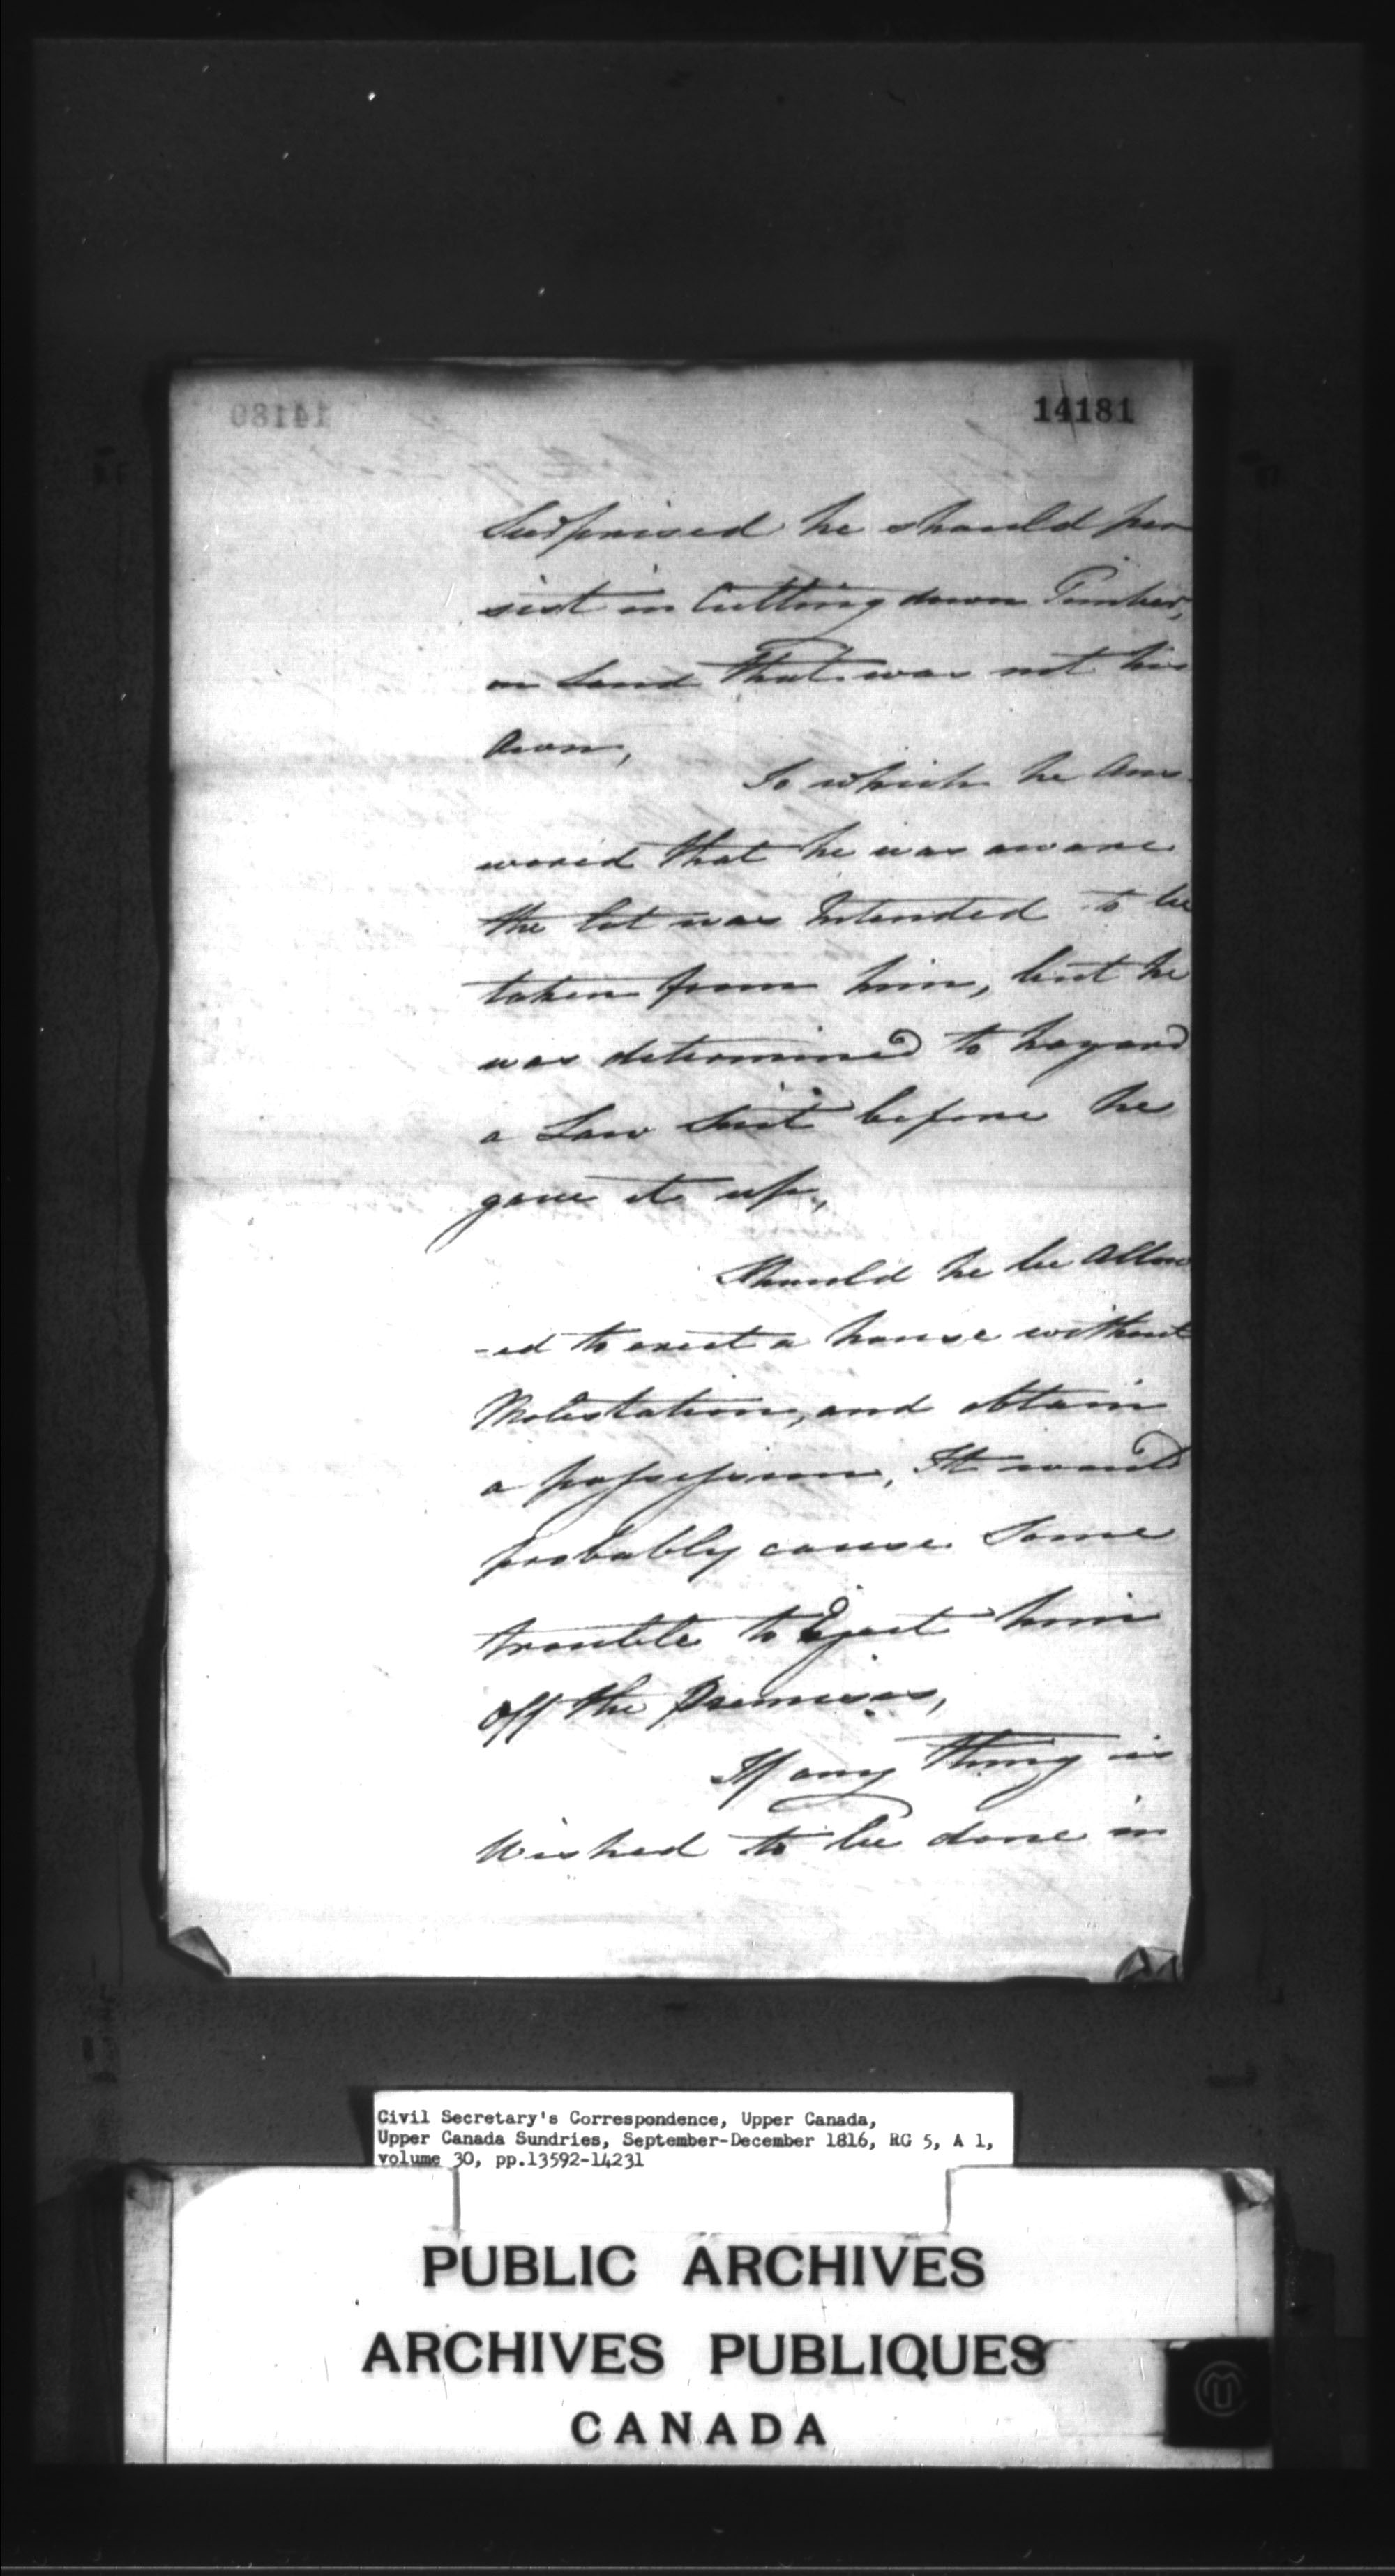 14181
Surprised he should per
sist in Cutting down Timber,
on Land that was not his
Own,
To which he Ans-
wered that he was aware
the lot was Intended to be
taken from him, but he
was determined to hazard
a Law Suit before he
gave it up,
Should he be Allow
-ed to erect a house without
Molestation, and obtain
a possession, It would
probably cause Some
trouble to Eject him
Off the Premises,
If any thing is
Wished to be done in
Civil Secretary's Correspondence, Upper Canada,
Upper Canada Sundries, September-December 1816, RG 5, A 1,
volume 30, pp.13592-14231
PUBLIC ARCHIVES
ARCHIVES PUBLIQUES
CANADA